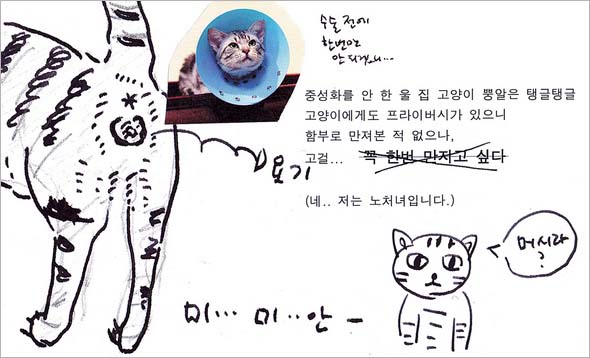 수술 전에
한번만
안 되겠니...
중성화를 안 한 울 집 고양이 뿅알은 탱글탱글
고양이에게도 프라이버시가 있으니
함부로 만져본 적 없으나,
고걸... 꼭 한번 만지고 싶다
요기
(네.. 저는 노처녀입니다.)
머시라
?
미... 미..안 -